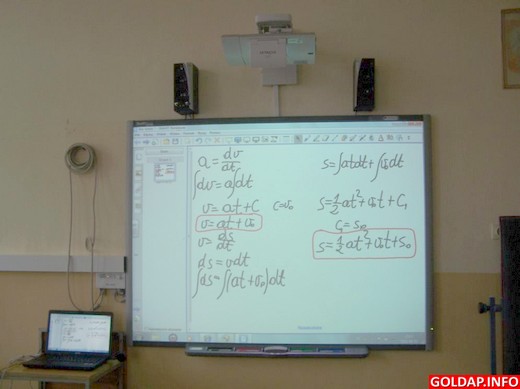 a = dv/dt
∫dv = a∫dt
v = at + C   C = v₀
v = at + v₀
v = ds/dt
ds = vdt
∫ds = ∫(at + v₀)dt
s = ∫atdt + ∫v₀dt
s = 1/2 at² + v₀t + C₁
C₁ = s₀
s = 1/2 at² + v₀t + s₀
GOLDAP.INFO